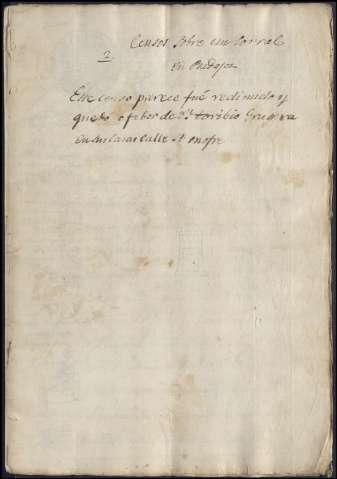 2 Censos sobre un corral
en Badajoz
Este censo parece fué redimido y
quedó a fabor de Dn toribio Gragera
en sus casas calle Sn onofre